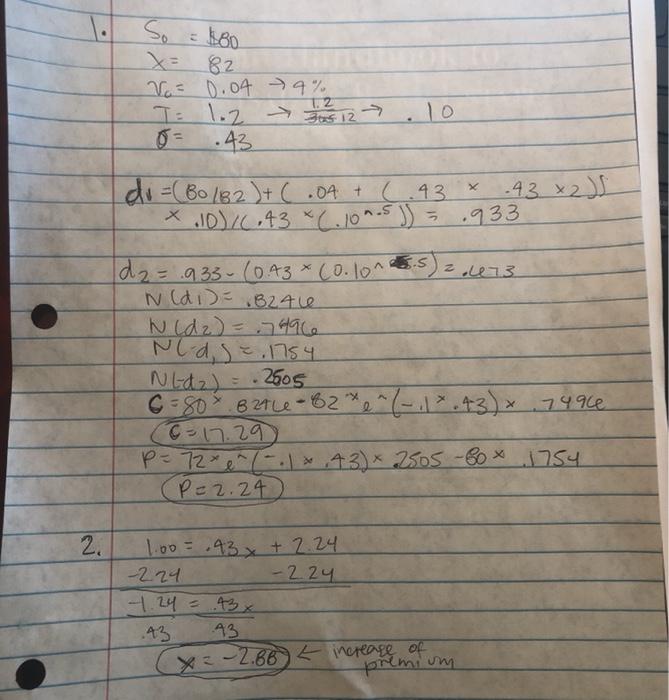 1. S₀ = $80
X = 82
r_c = 0.04 → 4%
T = 1.2 → 1.2/12 → .10
σ = .43
d₁ = (80/82) + (.04 + (.43 × .43 × 2))
× .10) / (.43 × (.10^.5)) = .933
d₂ = .933 - (0.43 × (0.10^.5) = .673
N(d₁) = .8246
N(d₂) = .7496
N(-d₁) = .1754
N(-d₂) = .2505
C = 80 × .8246 - 82 × e^(-.1 × .43) × .7496
C = 17.29
P = 72 × e^(-.1 × .43) × .2505 - 80 × .1754
P = 2.24
2. 1.00 = .43x + 2.24
-2.24 -2.24
-1.24 = .43x
.43 .43
x = -2.88 ← increase of
premium